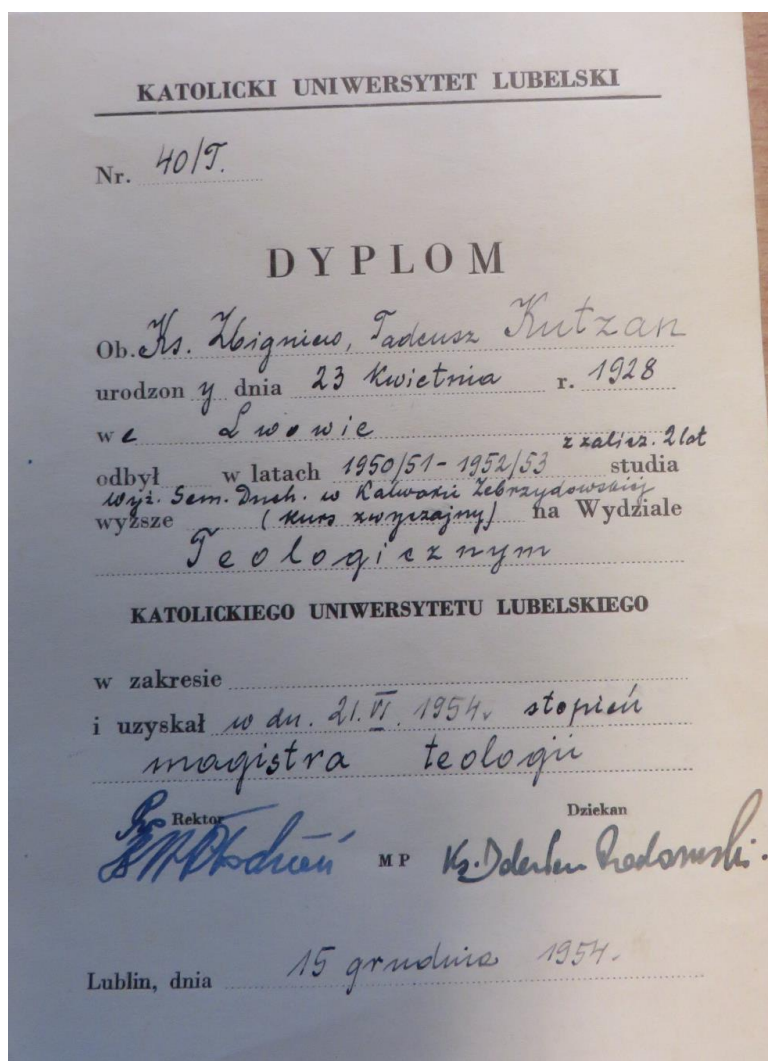 KATOLICKI UNIWERSYTET LUBELSKI
Nr. 40/T.
DYPLOM
Ob. Ks. Zbigniew, Tadeusz Kutzan
urodzony dnia 23 Kwietnia r. 1928
we Lwowie
z zalicz. 2 lat
odbył w latach 1950/51 - 1952/53 studia
Wyż. Sem. Duch. w Kalwarii Zebrzydowskiej
wyższe (kurs zwyczajny) na Wydziale
Teologicznym
KATOLICKIEGO UNIWERSYTETU LUBELSKIEGO
w zakresie
i uzyskał w dn. 21.VI.1954. stopień
magistra teologii
Rektor Dziekan
M P Ks.
Lublin, dnia 15 grudnia 1954.